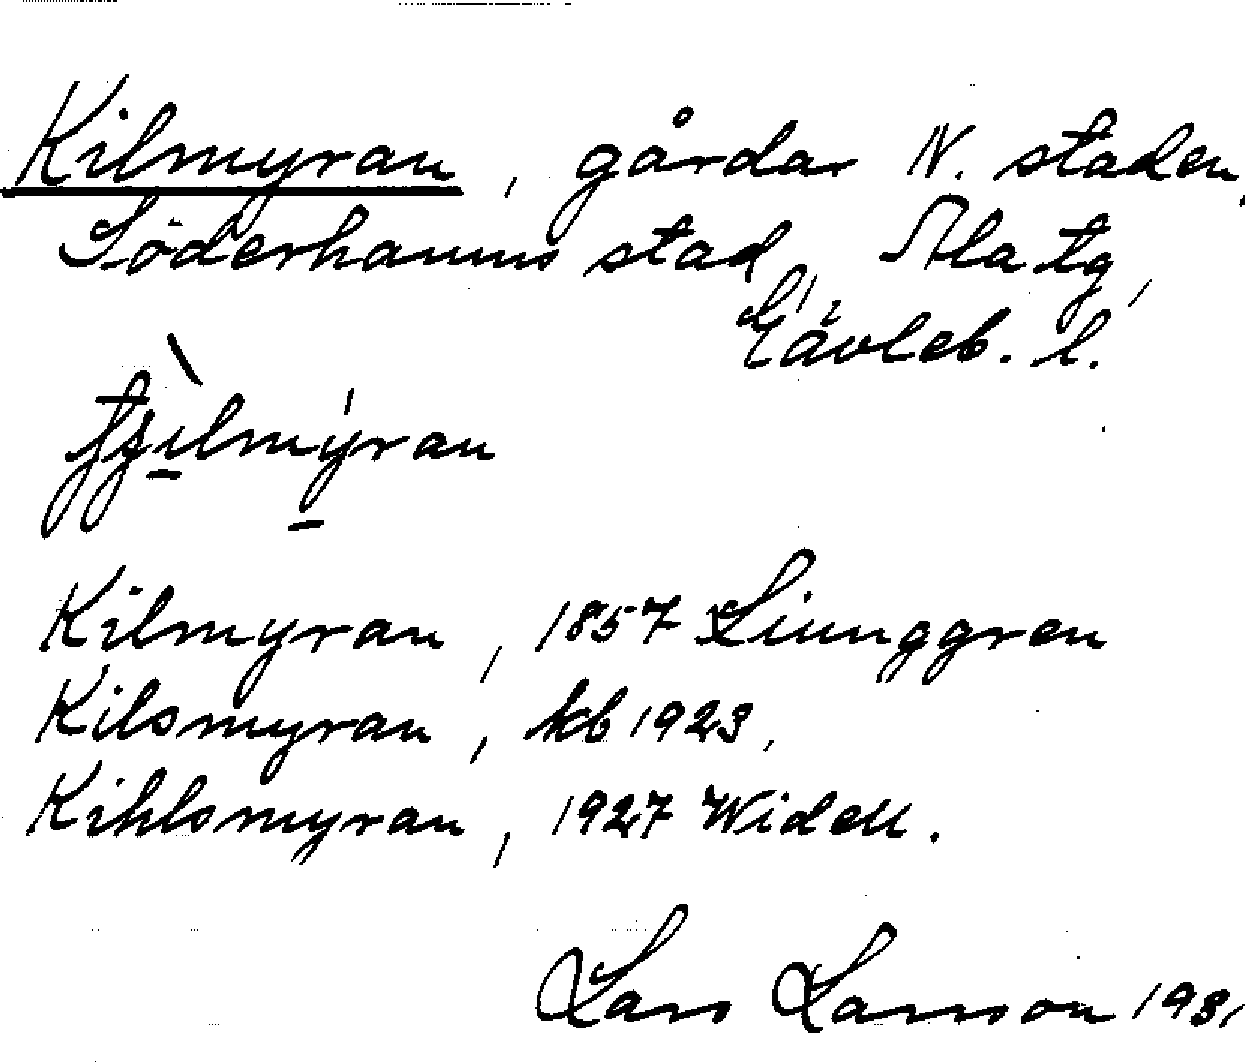 Kilmyran, gårdar N. staden,
Söderhamns stad, Ala tg,
Gävleb. l.
Kilmyran, 1857 Ljunggren
Kilsmyran, kb 1923,
Kihlsmyran, 1927 Widell.
Lars Larsson